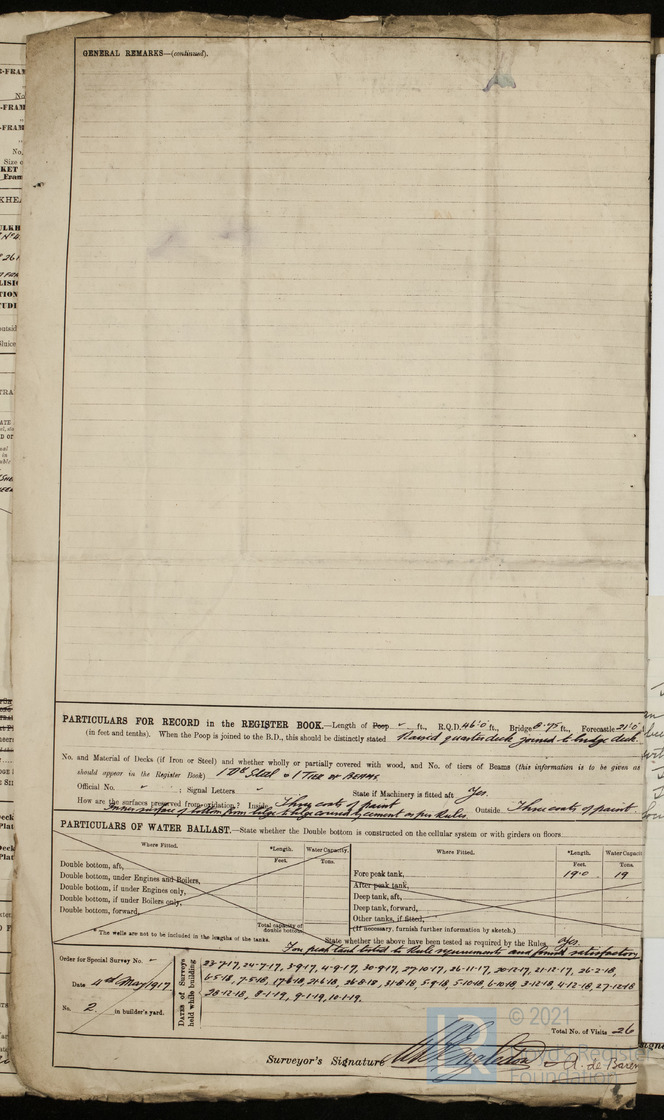 GENERAL REMARKS—(continued).
PARTICULARS FOR RECORD in the REGISTER BOOK.—Length of Poop " ft., R.Q.D. 46'0 ft., Bridge 8.75 ft., Forecastle 21'0
(in feet and tenths). When the Poop is joined to the B.D., this should be distinctly stated Raised quarterdeck joined to bridge deck.
No. and Material of Decks (if Iron or Steel) and whether wholly or partially covered with wood, and No. of tiers of Beams (this information is to be given as
should appear in the Register Book) 1 Dk Steel & 1 Tier of Beams
Official No. " ; Signal Letters " State if Machinery is fitted aft Yes.
How are the surfaces preserved from oxidation? Inside Three coats of paint Outside Three coats of paint
Inner surface of bottom from bilge to bilge covered by cement as per Rules.
PARTICULARS OF WATER BALLAST.—State whether the Double bottom is constructed on the cellular system or with girders on floors
Where Fitted. *Length. Water Capacity. Where Fitted. *Length. Water Capacit
Feet. Tons. Feet. Tons.
Double bottom, aft,
Double bottom, under Engines and Boilers,
Double bottom, if under Engines only,
Double bottom, if under Boilers only,
Double bottom, forward,
Total capacity of double bottom
Fore peak tank, 19.0 19
After peak tank,
Deep tank, aft,
Deep tank, forward,
Other tanks, if fitted,
(If necessary, furnish further information by sketch.)
* The wells are not to be included in the lengths of the tanks.
State whether the above have been tested as required by the Rules Yes.
Fore peak tank tested to Rule requirements and found satisfactory
Order for Special Survey No. "
Date 4th May 1917
No. 2 in builder's yard.
DATES of Surveys held while building
23-7-17, 24-7-17, 3-9-17, 4-9-17, 30-9-17, 27-10-17, 26-11-17, 20-12-17, 21-12-17, 26-2-18,
6-5-18, 7-5-18, 17-6-18, 21-6-18, 26-8-18, 31-8-18, 5-9-18, 5-10-18, 6-10-18, 3-12-18, 4-12-18, 27-12-18
28-12-18, 8-1-19, 9-1-19, 10-1-19.
Total No. of Visits 26
Surveyor's Signature & A. de Baren
LR
© 2021
Lloyd's Register
Foundation